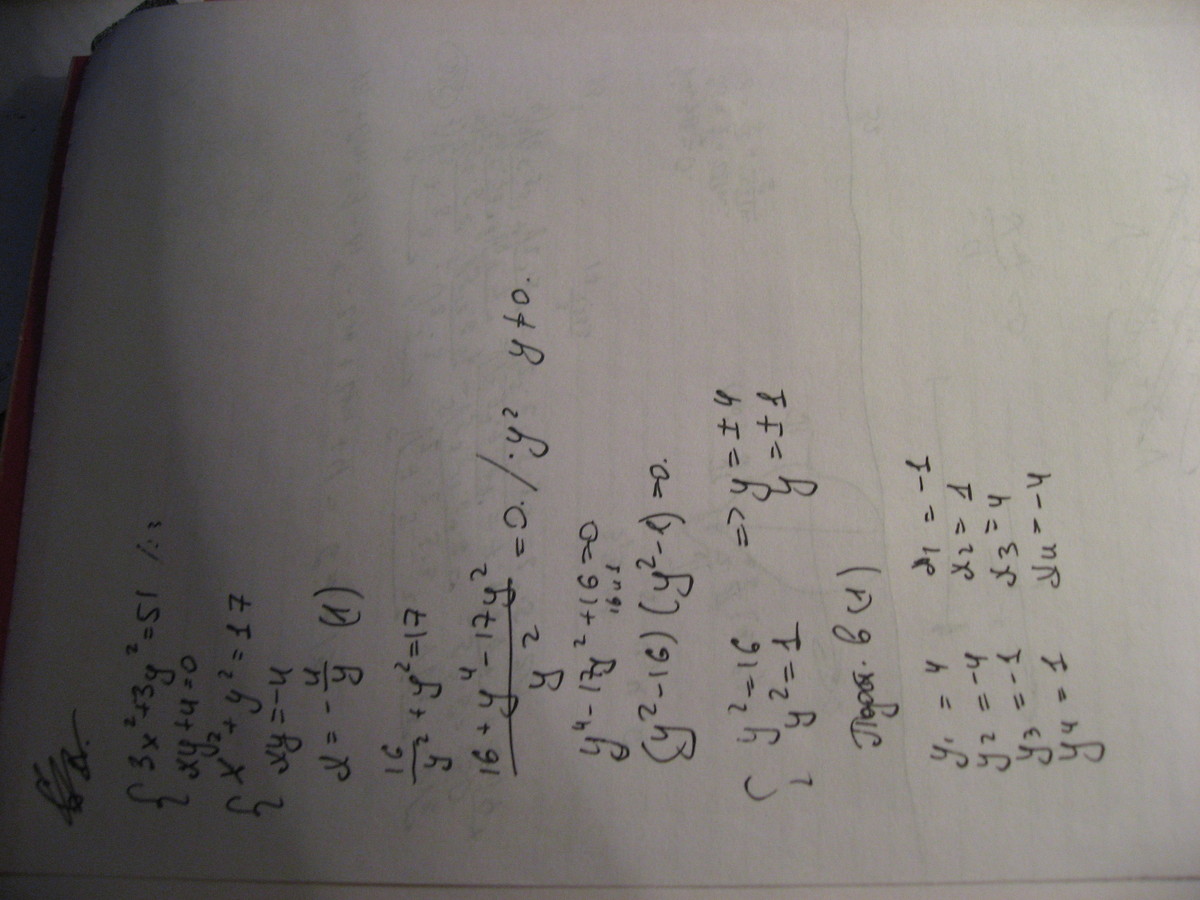 { 3x²+3y²=51 /:3
xy+4=0
{ x²+y²=17
xy=-4
x = - 4/y (1)
16/y² + y²=17
(16 + y⁴ - 17y²)/y² =0. /·y² y≠0.
y⁴-17y²+16=0
16 и 1
(y²-16)(y²-1)=0.
{ y²=16 => y=±4
y²=1 y=±1
в (1)
y₁ = 4 x₁ = -1
y₂ = -4 x₂ = 1
y₃ = -1 x₃ = 4
y₄ = 1 x₄ = -4